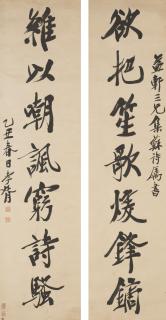 益軒三兄集蘇詩屬書
欲把笙歌煖鋒鏑
雜以嘲諷窮詩騷
乙丑春日孝胥